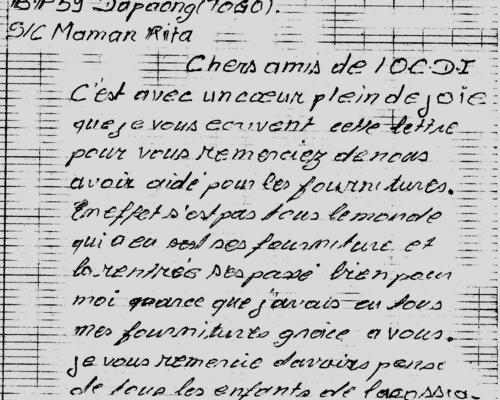 B.P 59 Dapaong (TOGO).
S/C Maman Rita
Chers amis de l'OCDI
C'est avec un cœur plein de joie
que je vous ecrivent cette lettre
pour vous remerciez de nous
avoir aidé pour les fournitures.
En effet s'est pas tous le monde
qui a eu ses fourniture et
la rentrée s'es passé bien pour
moi parce que j'avais eu tous
mes fournitures grâce a vous.
je vous remercie d'avoirs pense
de tous les enfants de